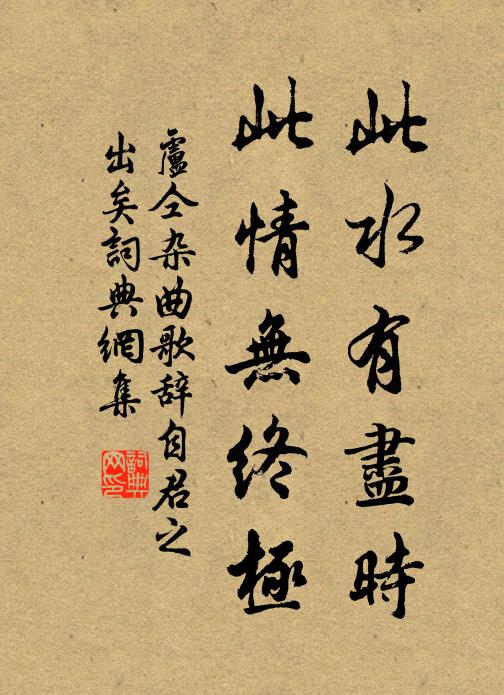 此水有盡時
此情無終極
盧仝杂曲歌辞自君之
出矣詞典網集
詞典网印